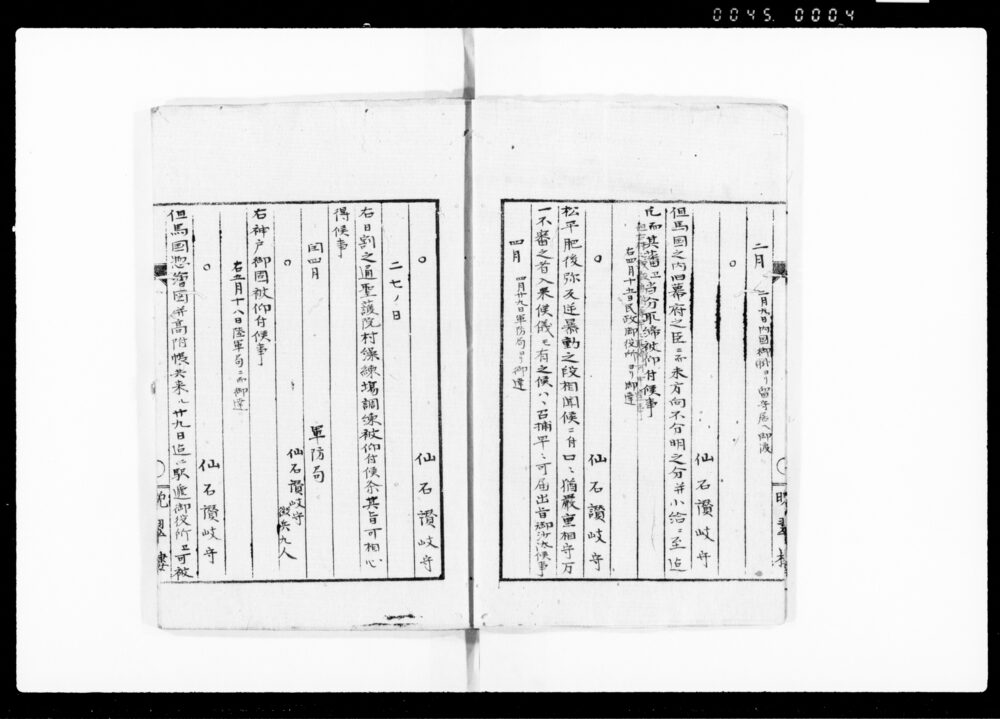 0045. 0004
二月 二月九日内国御掛ヨリ留守居ヘ御渡
○
仙石讃岐守
但馬国之内旧幕府之臣ニ而未方向不分明之分并小給ニ至迄
其藩ヱ当分取締被仰付候事
右四月十九日民政御役所ヨリ御達
○
仙石讃岐守
松平肥後弥反逆暴動之段相聞候ニ付口々猶厳重相守万
一不審之者入来候儀モ有之候ハヽ召捕早々可届出旨御沙汰候事
四月 四月廿九日軍防局ヨリ御達
○
仙石讃岐守
二七ノ日
右日割之通聖護院村操練場調練被仰付候条其旨可相心
得候事
閏四月
軍防局
○
仙石讃岐守
徴兵九人
右神戸御固被仰付候事
右五月十八日陸軍局ニ而御達
○
仙石讃岐守
但馬國惣繪図并高附帳共来ル廿九日迄ニ駅逓御役所ヱ可被
晩翠樓